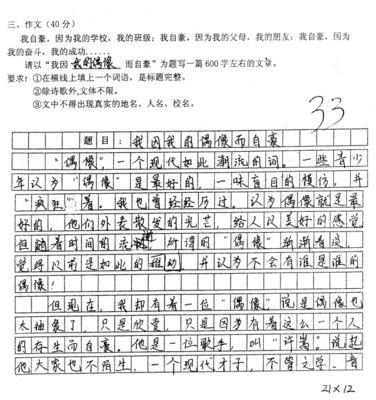 三、作文(40分)
我自豪，因为我的学校，我的班级；我自豪，因为我的父母，我的朋友；我自豪，因为
我的奋斗，我的成功……
请以“我因 我的偶像 而自豪”为题写一篇 600 字左右的文章。
要求：①在横线上填上一个词语，是标题完整。
②除诗歌外,文体不限。
③文中不得出现真实的地名、人名、校名。
33
题目：我因我的偶像而自豪
“偶像”，一个现代如此潮流的词。一些青少
年认为“偶像”是最好的，一味盲目的模仿，并
“疯狂”着。我也曾经经历过。认为偶像就是最
好的，他们外表散发的光芒，给人以美好的感觉
但随着时间的流逝，所谓的“偶像”渐渐看淡，
觉得以前是如此的，并认为不会有谁是谁的
偶像！
但现在，我却有着一位“偶像”说是偶像也
太抽象了，只是欣赏，只是因为有着这么一个人
的存生而自豪。他是一位歌手，叫“许嵩”说起
他大家也不陌生，一个现代才子，不管文学、音
21×12